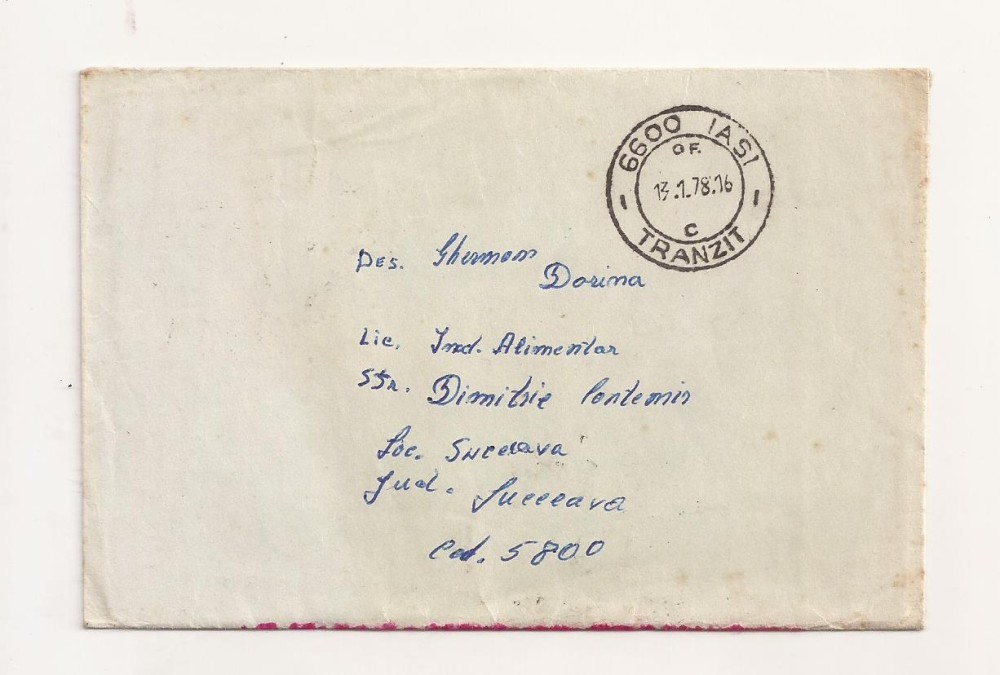 6600 IASI
OF.
13.1.78.16
C
TRANZIT
Des. Gherman
Dorina
Lic. Ind. Alimentar
Str. Dimitrie Cantemir
Loc. Suceava
Jud. Suceava
Cod. 5800